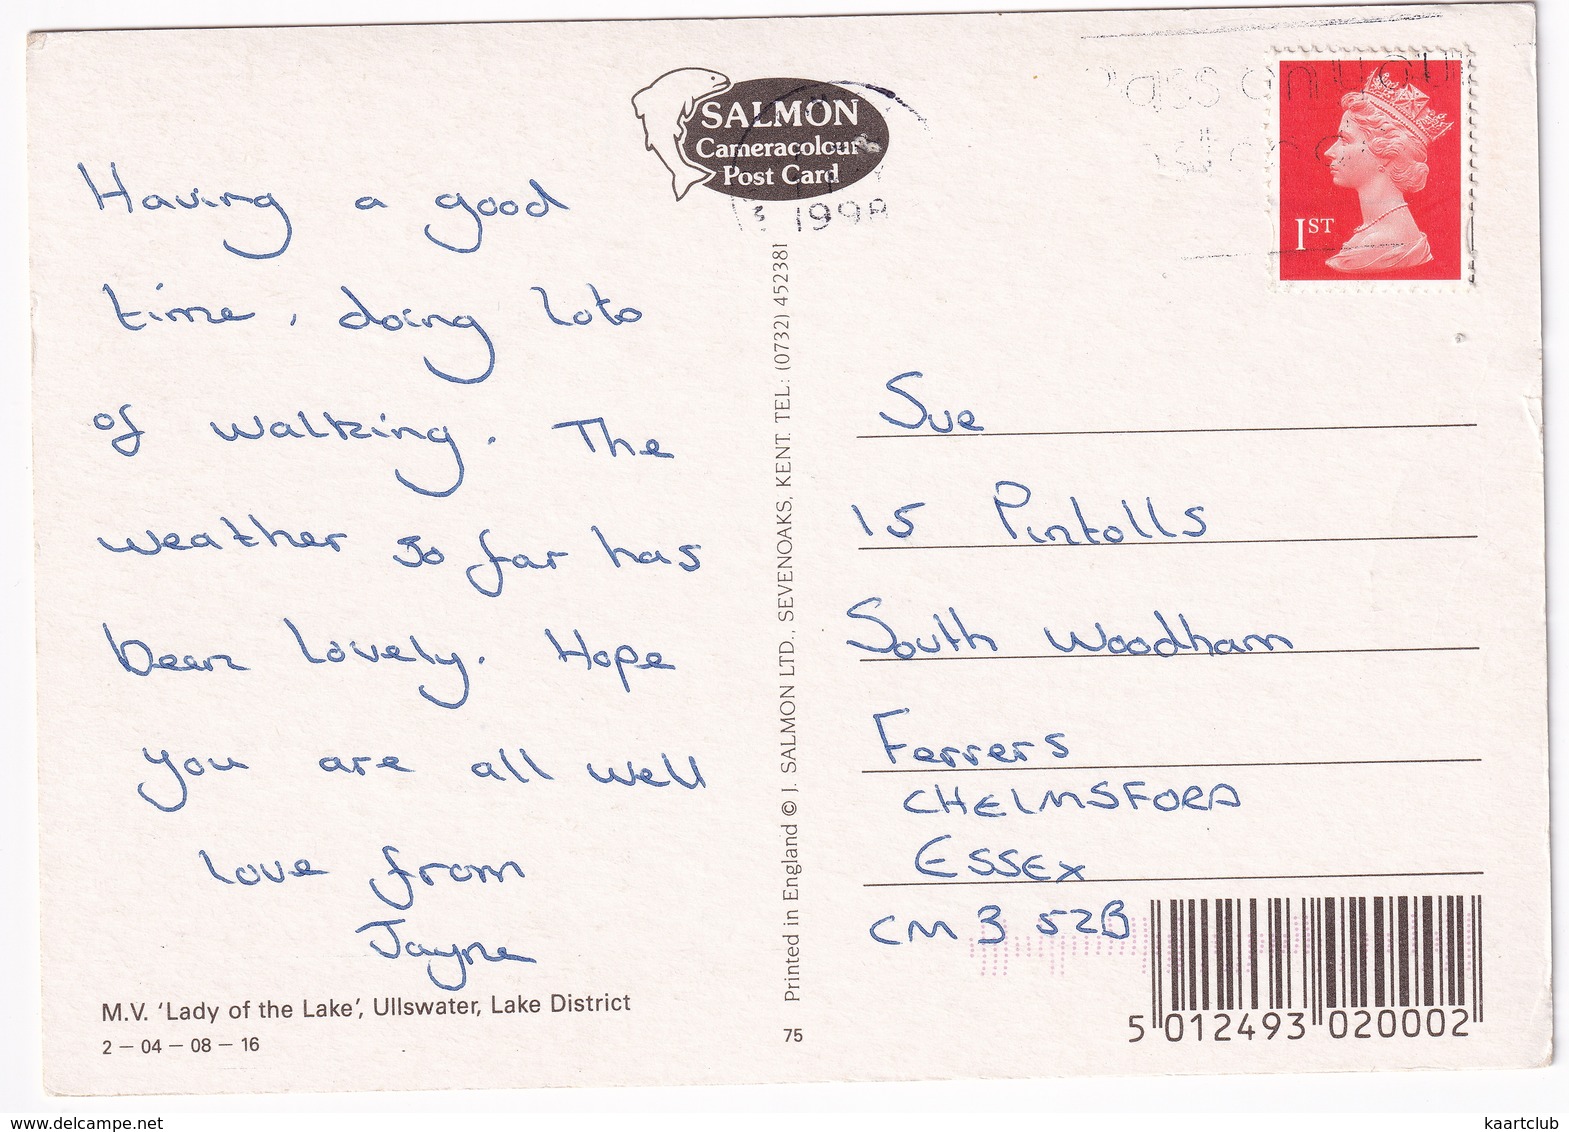 SALMON
Cameracolour
Post Card
1998
1ST
Having a good
time, doing lots
of walking. The
weather so far has
been lovely. Hope
you are all well
love from
Jayne
M.V. 'Lady of the Lake', Ullswater, Lake District
2 – 04 – 08 – 16
Printed in England © J. SALMON LTD., SEVENOAKS, KENT. TEL: (0732) 452381
75
Sue
15 Pintolls
South Woodham
Ferrers
CHELMSFORD
ESSEX
CM3 5ZB
5 012493 020002
kaartclub